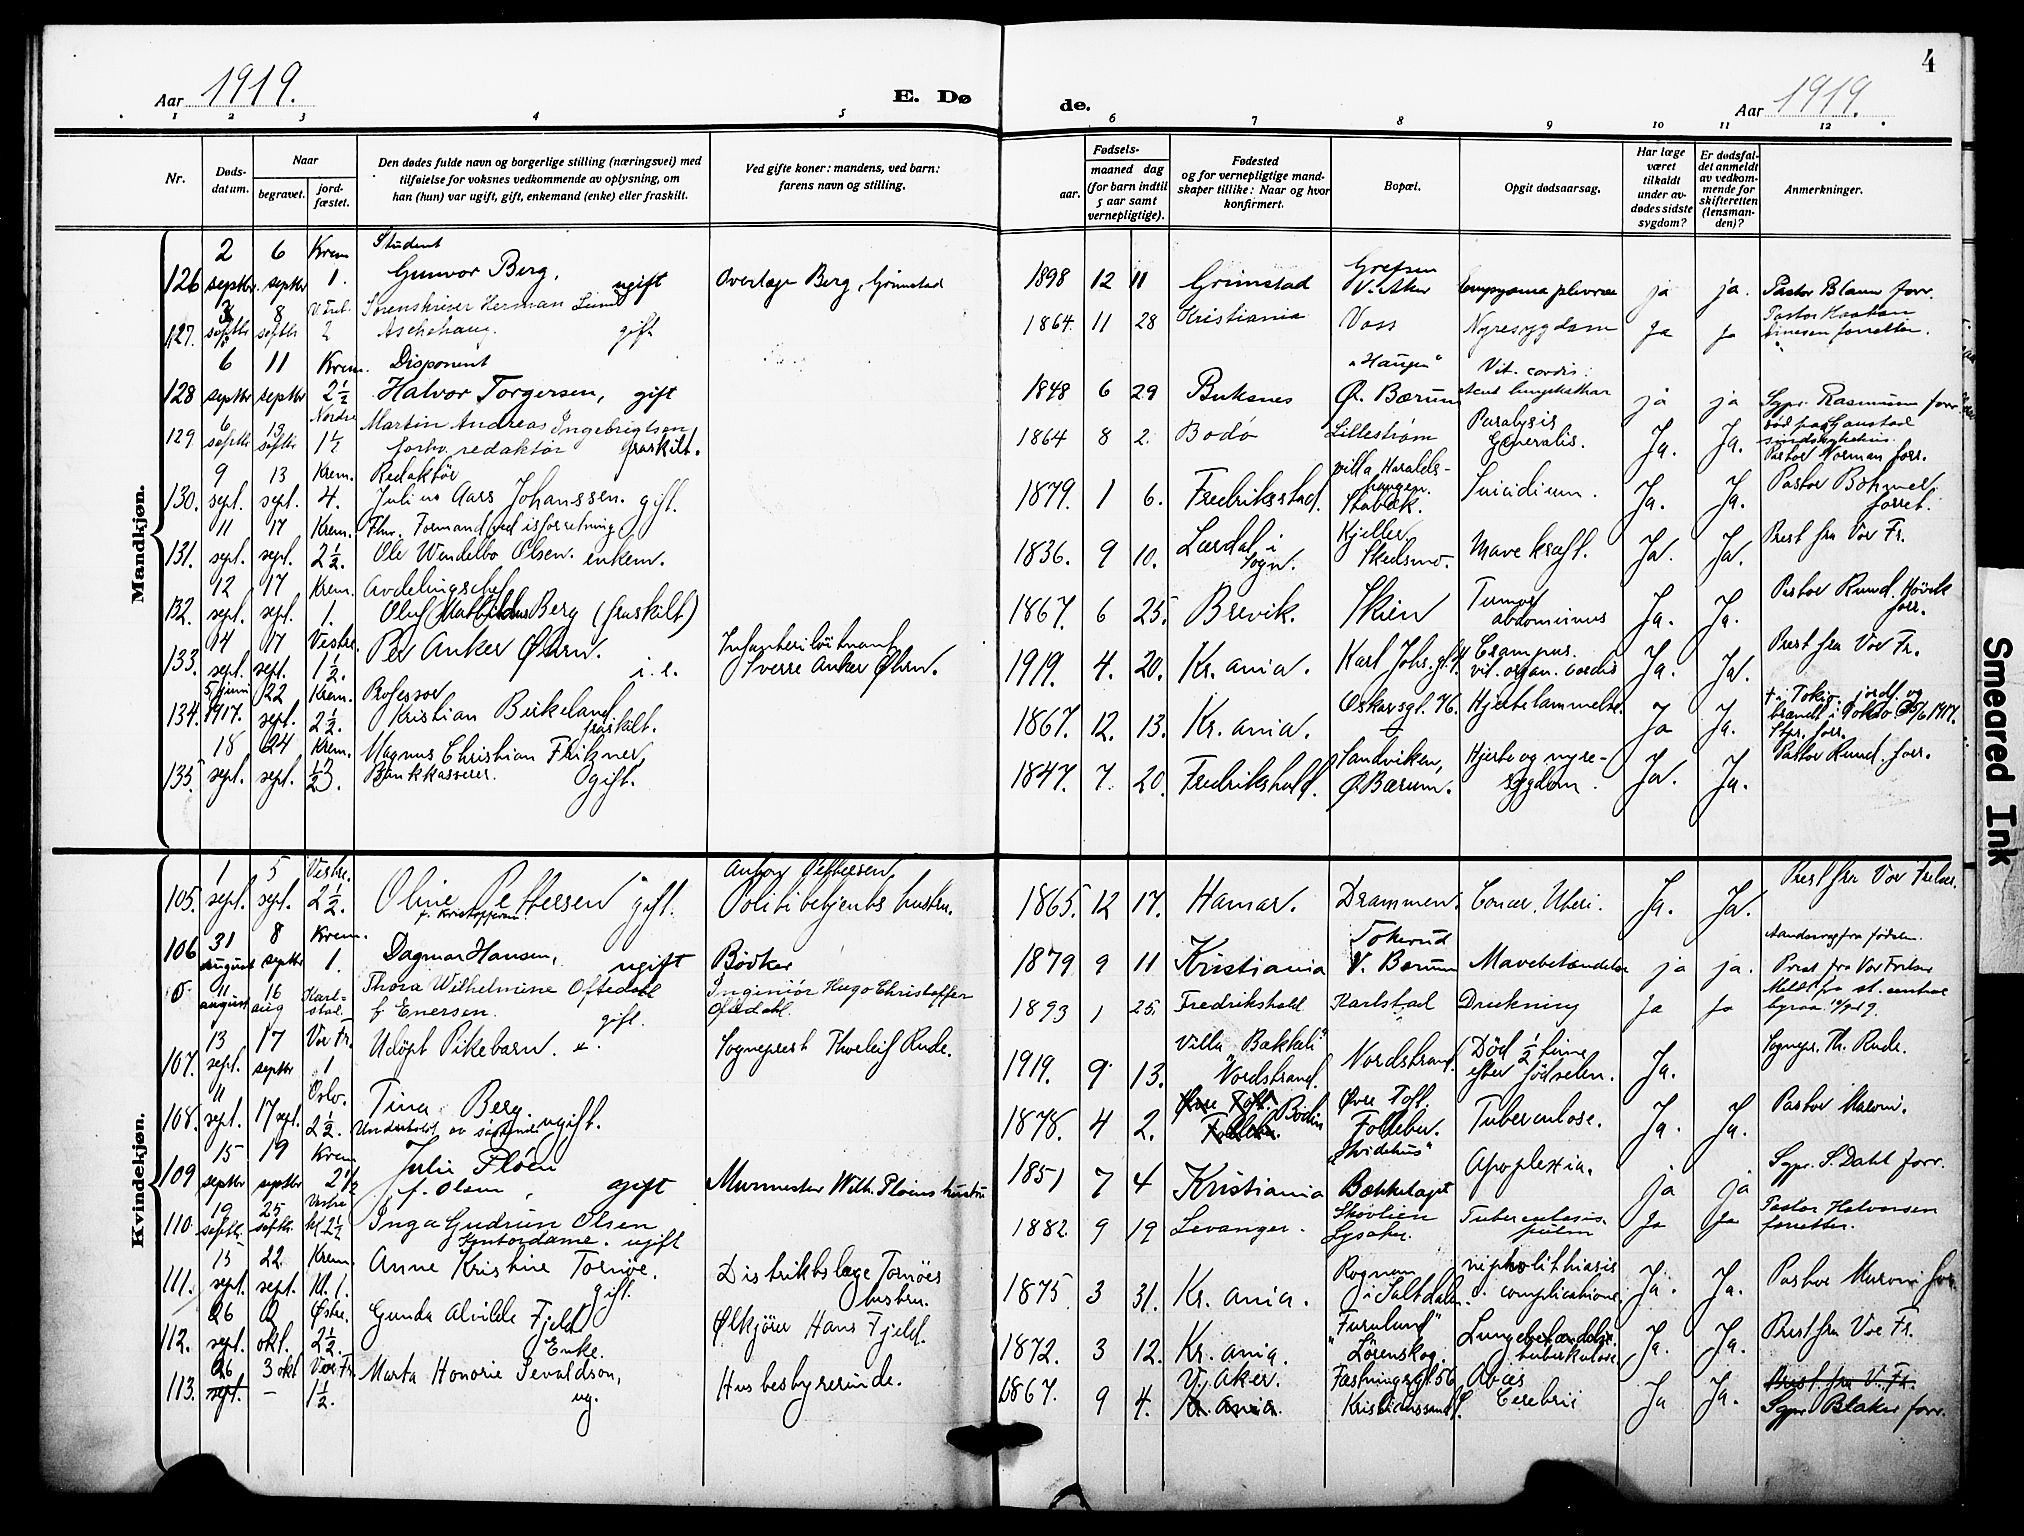 4
Aar 1919.
E. Døde.
Aar 1919.
1 2 3 4 5 6 7 8 9 10 11 12
Nr.
Døds-datum.
Naar
begravet.
jord-fæstet.
Den dødes fulde navn og borgerlige stilling (næringsvei) med
tilføielse for voksnes vedkommende av oplysning, om
han (hun) var ugift, gift, enkemand (enke) eller fraskilt.
Ved gifte koner: mandens, ved barn:
farens navn og stilling.
Fødsels-
aar.
maaned dag
(for barn indtil
5 aar samt
vernepligtige).
Fødested
og for vernepligtige mand-
skaper tillike: Naar og hvor
konfirmert.
Bopæl.
Opgit dødsaarsag.
Har læge
været
tilkaldt
under av-
dødes sidste
sygdom?
Er dødsfal-
det anmeldt
av vedkom-
mende for
skifteretten
(lensman-
den)?
Anmerkninger.
Mandkjøn.
126 2 septbr. 6 septbr Krem 1. Student Gunvor Berg, ugift Overlæge Berg, Grimstad 1898 12 11 Grimstad Grefsen V. Aker Empyema plevrae ja ja. Pastor Blauw forr.
127. 3 septbr 8 septbr 2 Sorenskriver Herman Lunds Aschehaug. gift 1864. 11 28 Kristiania Voss Nyresygdom Ja Ja Pastor Haakon forretter.
128 6 septbr 11 septbr Krem. 2½ Disponent Halvor Torgersen, gift 1848 6 29 Buksnes "Haugen" Ø. Bærum Vit. cordis. Acut lungekatarr ja ja Sgpr. Rasmussen forr
129. 6 septbr 13 septbr Nordre 1½ Martin Andreas Ingebrigtsen forhv. redaktør fraskilt. 1864 8 2. Bodø Lillestrøm Paralysis Generalis. Ja. Ja. død paa Gaustad sindssykehus. Pastor Norman forr.
130. 9 sept. 13 sept. Krem. 4. Redaktør Julius Aars Johanssen. gift. 1879. 1 6. Fredriksstad. villa Haralds-haugen. Stabæk. Suicidium. Ja. Ja. Pastor Bohmer forret.
131. 11 sept. 17 sept. Krem. 2½. Fhv. Formand ved isforretning Ole Wendelbo Olsen. enkem. 1836. 9 10. Lærdal i Sogn. Kjeller, Skedsmo. Mavekræft. Ja. Ja. Prest fra Vor Fr.
132. 12 sept. 17 sept. Krem. 1. Avdelingschef Oluf Mathildus Berg (fraskilt) 1867. 6 25. Brevik. Skien Tumor abdominus Ja. Ja. Pastor Rund. Høvik forr.
133. 14 sept. 17 sept. Vestre. 1½. Per Anker Øhrn. i.e. Infanteriløitnant Sverre Anker Øhrn. 1919. 4. 20. Kr. ania. Karl Johs. gt. 4 Crampus. vit. organ. cordis Ja. Ja. Prest fra Vor Fr.
134. 5 juni 1917. 22 sept. Krem. 2½. Professor Kristian Birkeland fraskilt. 1867. 12. 13. Kr. ania. Oskarsgt. 76. Hjertelammelse. Ja Ja. † i Tokio. jordf. og brændt i Tokio 25/6 1917. Stpr. forr.
135 18 sept. 24 sept. Krem. ½3. Magnus Christian Fritzner, Bankkasserer. gift. 1847. 7. 20. Fredrikshald. Sandviken, Ø. Bærum. Hjerte og nyre-sygdom. Ja. Ja. Pastor Rund. forr.
Kvindekjøn.
105. 1 sept. 5 sept. Vestre. 2½. Oline Pettersen f. Kristoffersen gift. Anton Pettersen, Politibetjents hustru. 1865. 12 17. Hamar. Drammen. Cancer. Uteri. Ja. Ja. Prest fra Vor Frelser.
106 31 august 8 septbr Krem. 1. Dagmar Hansen, ugift Bødker 1879 9 11 Kristiania Tokerud V. Bærum Mavebetændelse ja ja. Aandssvag fra fødselen. Prest fra Vor Frelser
0 11 august 16 aug Karl-stad. Thora Wilhelmine Oftedahl f. Enersen. gift. Ingeniør Hugo Christoffer Oftedahl. 1893 1 25. Fredrikshald Karlstad Drukning Ja Ja Meldt fra st. central byraa
107. 13 sept. 17 septbr Vor Fr. 1 Udøpt Pikebarn. Sogneprest Thorleif Rude. 1919. 9. 13. Villa "Bakkeli" Nordstrand. Nordstrand. Død ½ time efter fødselen. Ja. Sognepr. Th. Rude.
108. 11 sept. 17 sept. Oslo. 2½. Tina Berg. Underholdt av søskende ugift. 1878. 4 2. Bodin Øvre Toft. Follebu. Tuberculose. Ja. Ja. Pastor Maroni.
109 15 septbr 19 septbr Krem 2½ Julie Pløen f. Olsen, gift Murmester Wilh. Pløens hustru 1851 7 4 Kristiania "Hvidehus" Bækkelaget Apoplexia. ja ja Sgpr. S. Dahl forr.
110. 19 septbr. 25 septbr. Vestre kl 2½ Inga Gudrun Olsen Kontordame. ugift 1882. 9 19 Levanger. Skovlien Lysaker. Tuberculosis pulm Ja Ja Pastor Halvorsen forretter.
111. 15 sept. 22 sept. Krem. Kl. 1. Anne Kristine Tornøe. gift. Distriktslæge Tornøes hustru. 1875 3 31. Kr. ania. Rognan i Saltdalen. nepholithiasis complicationer. Ja. Ja. Pastor Maroni forr
112. 26 sept. 2 okt. Østre. 2½. Gunda Alvilde Fjeld Enke. Ølkjører Hans Fjeld. 1872. 3 12. Kr. ania. "Furulund" Lørenskog. Lungebetændelse tuberkuløse Ja. Ja. Prest fra Vor Fr.
113. 26 sept. 3 okt. Vor Fr. 1½. Marta Honorie Sevaldson, ug. Husbestyrerinde. 1867. 9 4. V. Aker. Kr. ania. Fæstningsgt. 56 Kristianssund S. Absces Cerebrii Ja Ja. Prest. fra V. Fr. Sgpr. Blaker forr.
Smeared Ink